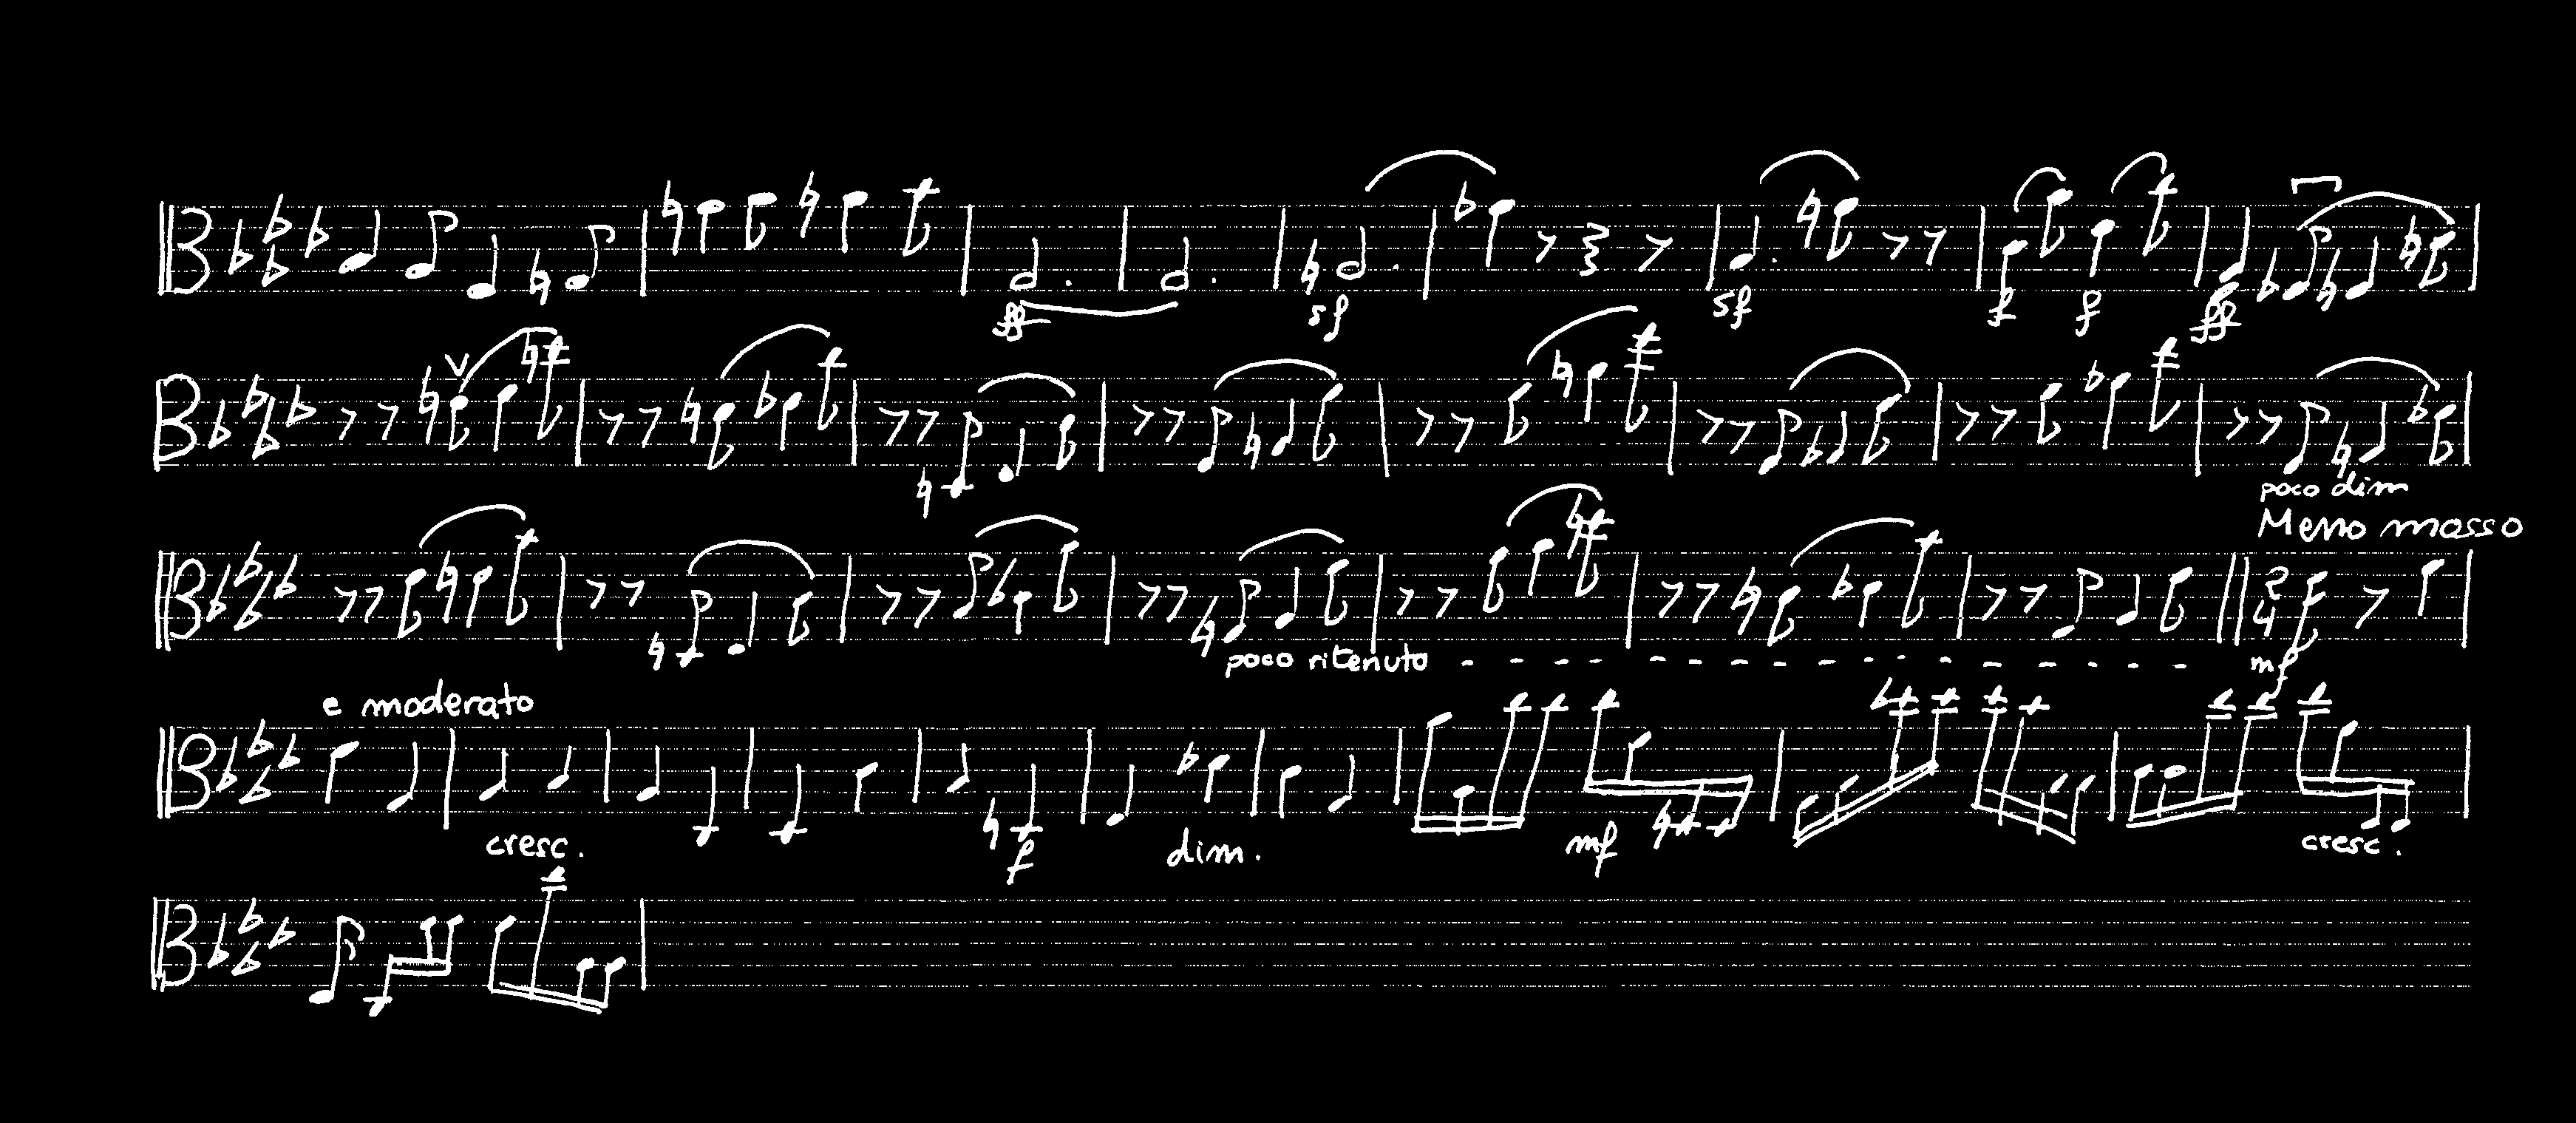 ff sf sf f f ff
poco dim
Meno mosso
poco ritenuto - - - - - - - - - - - - - - - mf
2
4
e moderato
cresc. f dim. mf cresc.